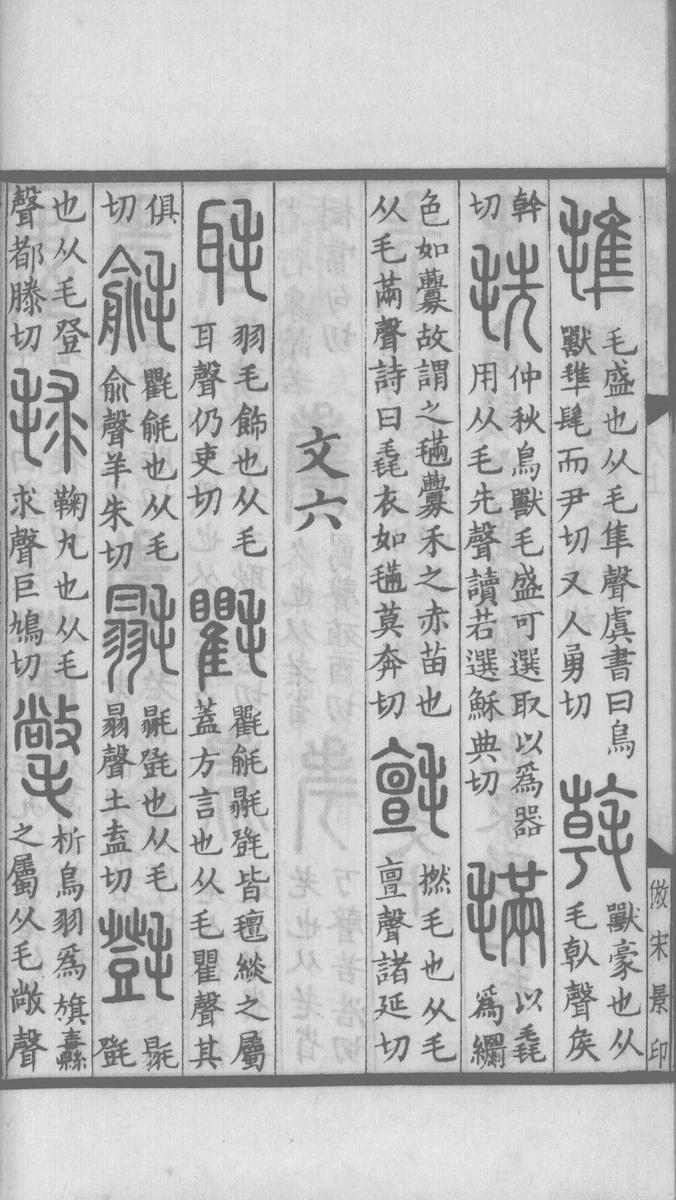 𣯍
毛盛也从毛隼聲虞書曰鳥
獸𣯍髦而尹切又人勇切
獸豪也从
毛倝聲矦
幹
切
毨
仲秋鳥獸毛盛可選取以爲器
用从毛先聲讀若選穌典切
𣯩
以毳
爲繝
色如虋故謂之𣯩虋禾之赤苗也
从毛㒼聲詩曰毳衣如𣯩莫奔切
氈
撚毛也从毛
亶聲諸延切
文六
毦
羽毛飾也从毛
耳聲仍吏切
氍
氍毹毾㲪皆氊緂之屬
蓋方言也从毛瞿聲其
俱
切
毹
氍毹也从毛
俞聲羊朱切
毾
毾㲪也从毛
𦐇聲土盍切
㲪
毾
㲪
也从毛登
聲都滕切
毬
鞠丸也从毛
求聲巨鳩切
氅
析鳥羽爲旗纛
之屬从毛敞聲
倣宋景印